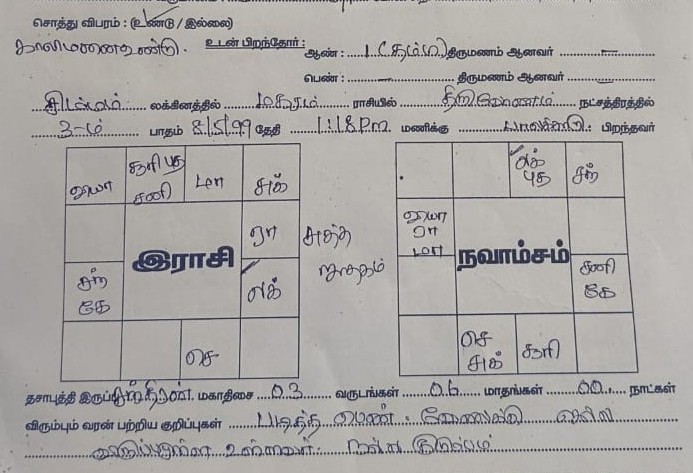 சொத்து விபரம் : (உண்டு / இல்லை)
காலிமனை உண்டு. உடன் பிறந்தோர் : ஆண் : 1 (தம்பி) திருமணம் ஆனவர் –
பெண் : – திருமணம் ஆனவர் –
சிம்மம் லக்கினத்தில் மகரம் ராசியில் திருவோணம் நட்சத்திரத்தில்
3-ம் பாதம் 8/5/99 தேதி 1:18 P.m. மணிக்கு பிறந்தவர்
சூரி புத சனி
மா
சுக்
ரா
சந் கே
இராசி
லக்
செ
லக் புத
சந்
ரா
மா
நவாம்சம்
சனி கே
செ சுக்
சூரி
தசாபுத்தி இருப்பு சந்திரன் மகாதிசை 03 வருடங்கள் 06 மாதங்கள் 00 நாட்கள்
விரும்பும் வரன் பற்றிய குறிப்புகள் படித்த பெண்.
நல்ல குடும்பம்